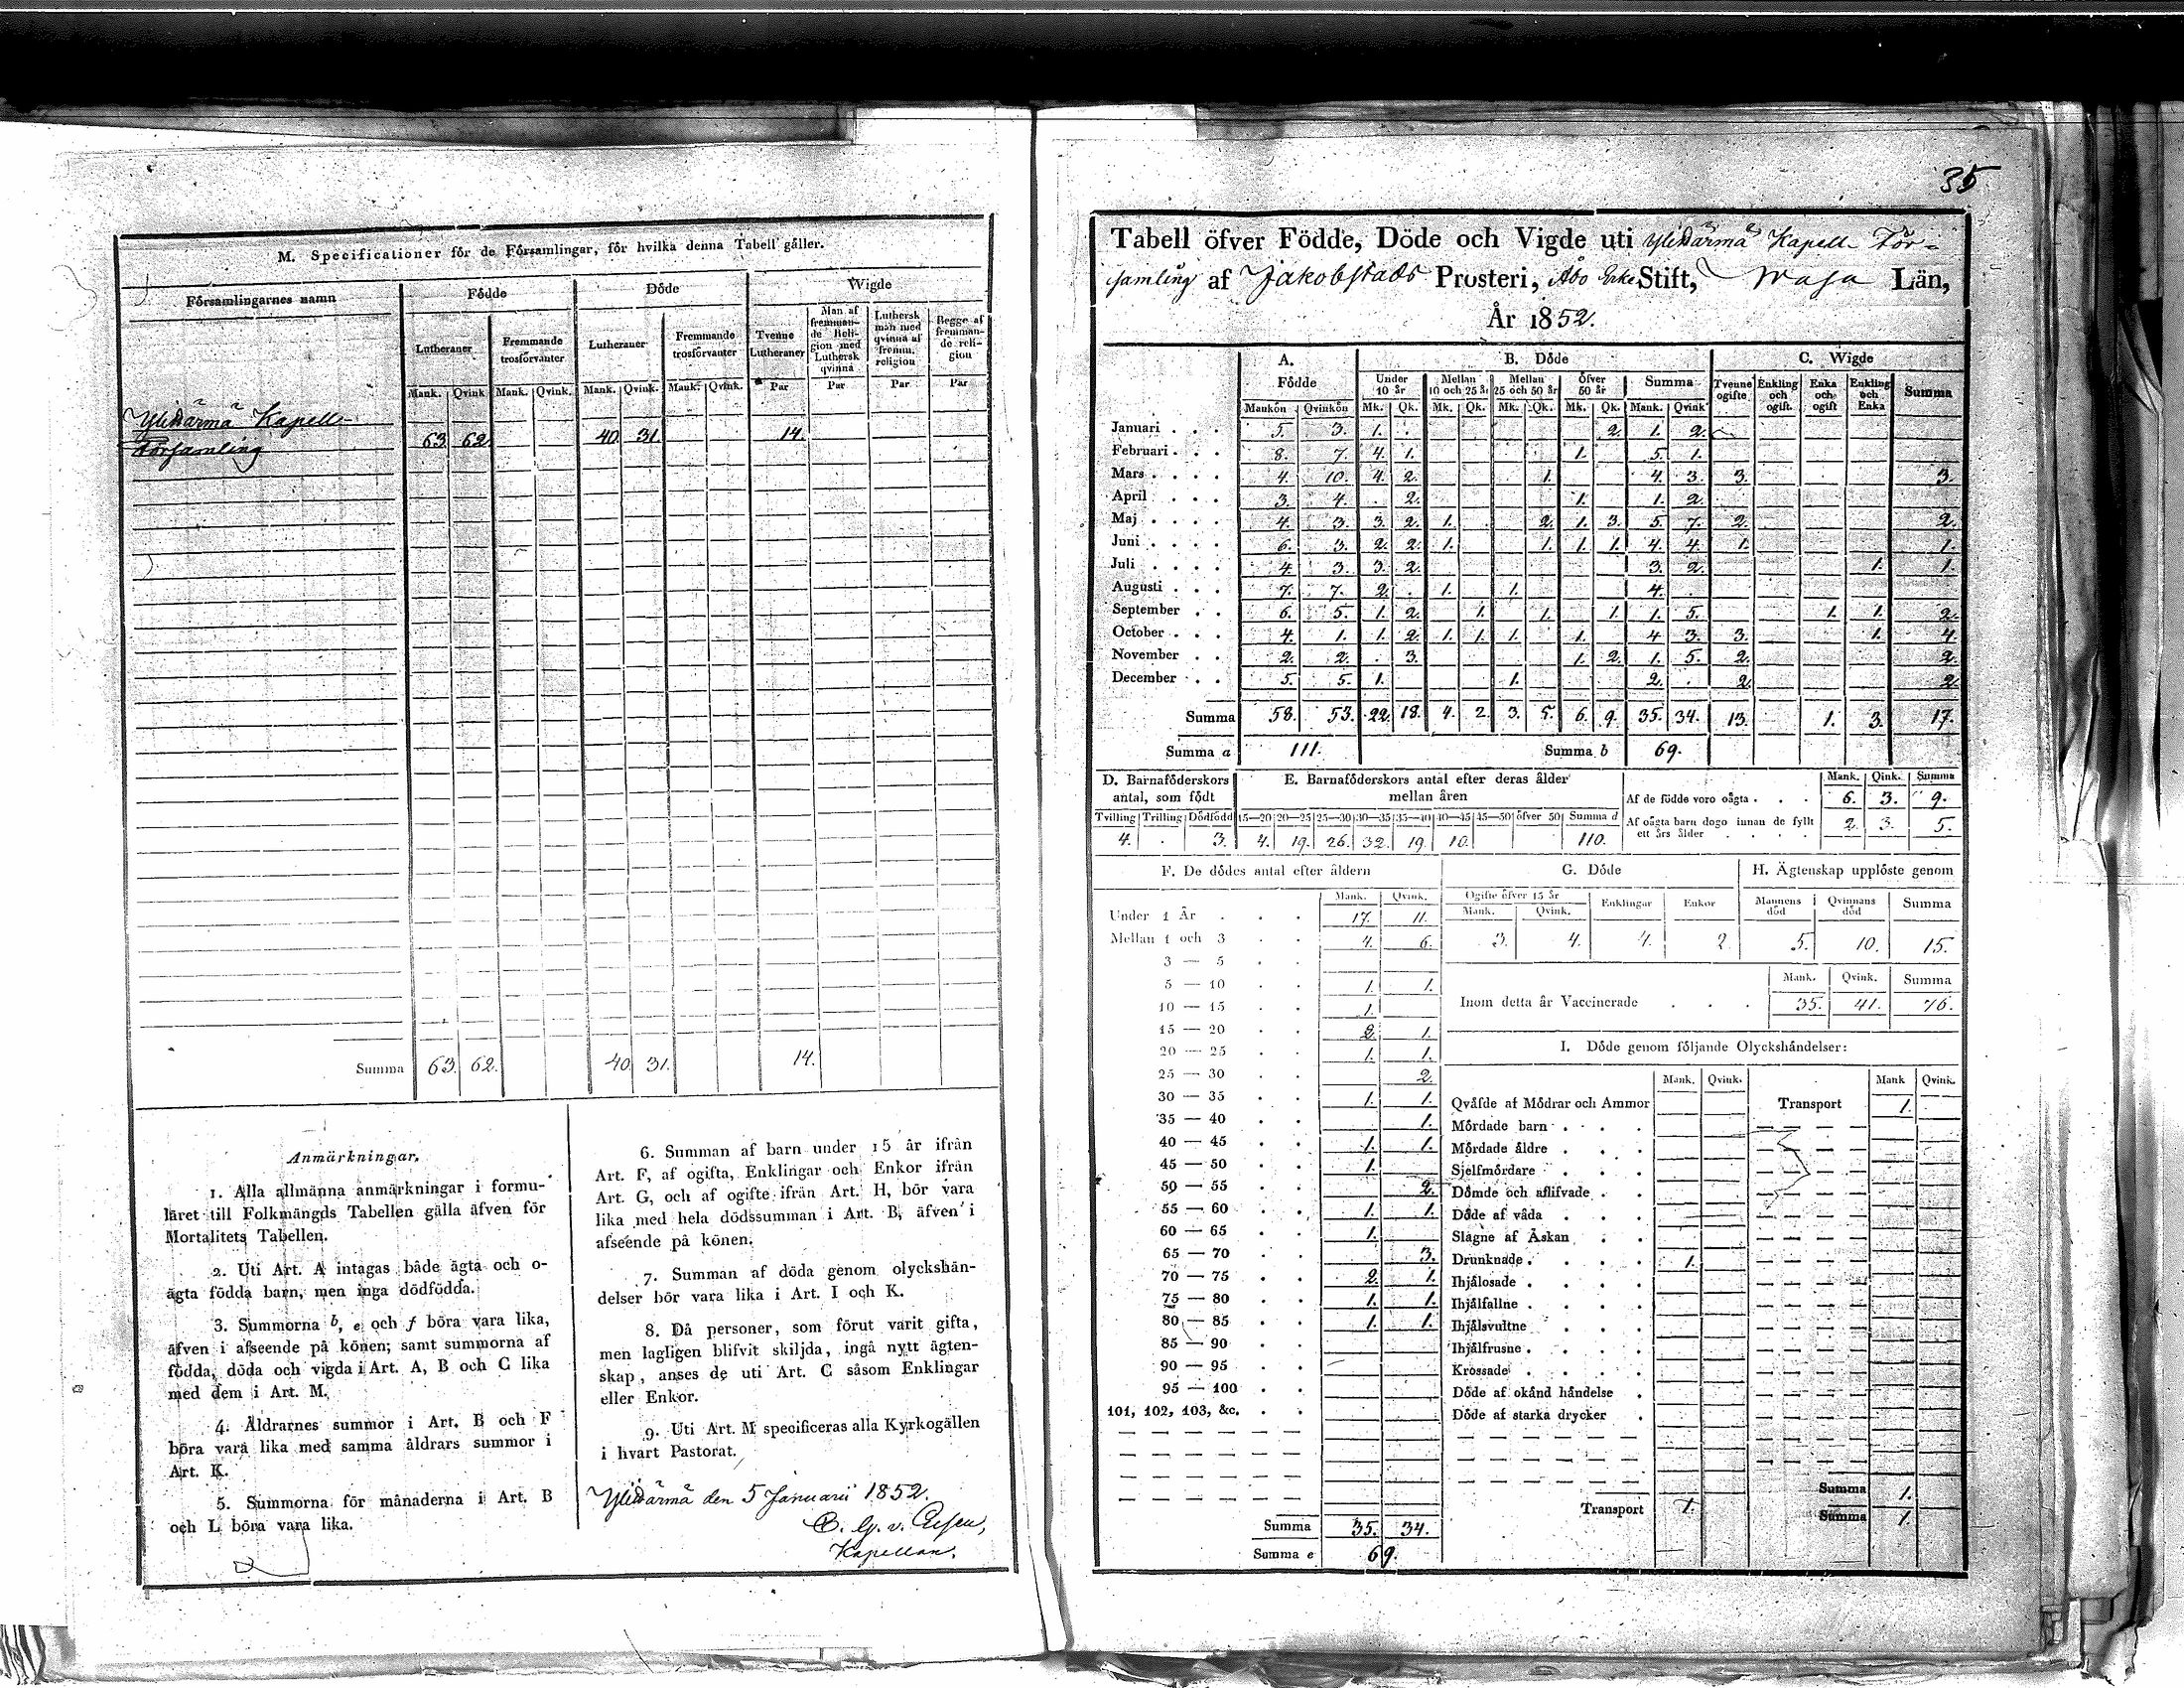 M. Specificationer för de Församlingar, för hvilka denna Tabell gäller.
Församlingarnes namn Födde Döde Wigde
Lutheraner Fremmande trosförvanter Lutheraner Fremmande trosförvanter Tvenne Lutheraner Man af fremmande Religion med Luthersk qvinna Luthersk man med qvinna af fremm. religion Begge af fremmande religion
Mank. Qvink. Mank. Qvink. Mank. Qvink. Mank. Qvink. Par Par Par Par
Ylihärmä Kapell-
Församling 63. 62. 40. 31. 14.
Summa 63. 62. 40. 31. 14.
Anmärkningar.
1. Alla allmänna anmärkningar i formu-
läret till Folkmängds Tabellen gälla äfven för
Mortalitets Tabellen.
2. Uti Art. A intagas både ägta och o-
ägta födda barn, men inga dödfödda.
3. Summorna b, e och f böra vara lika,
äfven i afseende på könen; samt summorna af
födda, döda och vigda i Art. A, B och C lika
med dem i Art. M.
4. Åldrarnes summor i Art. B och F
böra vara lika med samma åldrars summor i
Art. K.
5. Summorna för månaderna i Art. B
och L böra vara lika.
6. Summan af barn under 15 år ifrån
Art. F, af ogifta, Enklingar och Enkor ifrån
Art. G, och af ogifte ifrån Art. H, bör vara
lika med hela dödssumman i Art. B, äfven i
afseende på könen.
7. Summan af döda genom olyckshän-
delser bör vara lika i Art. I och K.
8. Då personer, som förut varit gifta,
men lagligen blifvit skiljda, ingå nytt ägten-
skap, anses de uti Art. C såsom Enklingar
eller Enkor.
9. Uti Art. M specificeras alla Kyrkogällen
i hvart Pastorat.
Ylihärmä den 5 Januarii 1852.
Kapellan.
35
Tabell öfver Födde, Döde och Vigde uti Ylihärmä Kapell För-
samling af Jakobstads Prosteri, Åbo Erke Stift, Wasa Län,
År 1852.
A. Födde B. Döde C. Wigde
Under 10 år Mellan 10 och 25 år Mellan 25 och 50 år Öfver 50 år Summa Tvenne ogifte Enkling och ogift. Enka och ogift Enkling och Enka Summa
Mankön Qvinkön Mk. Qk. Mk. Qk. Mk. Qk. Mk. Qk. Mank. Qvink
Januari . . . 5. 3. 1. . 2. 1. 2.
Februari . . . 8. 7. 4. 1. 1. 5. 1.
Mars . . . . 4. 10. 4. 2. 1. 4. 3. 3. 3.
April . . . 3. 4. . 2. 1. 1. 2.
Maj . . . . 4. 3. 3. 2. 1. 2. 1. 3. 5. 7. 2. 2.
Juni . . . . 6. 3. 2. 2. 1. 1. 1. 1. 4. 4. 1. 1.
Juli . . . . 4. 3. 3. 2. 3. 2. 1. 1.
Augusti . . . 7. 7. 2. . 1. 1. 4. .
September . . 6. 5. 1. 2. 1. 1. 1. 1. 5. 1. 1. 2.
October . . . 4. 1. 1. 2. 1. 1. 1. 1. 4. 3. 3. 1. 4.
November . . 2. 2. . 3. 1. 2. 1. 5. 2. 2.
December . . 5. 5. 1. 1. 2. . 2. 2.
Summa 58. 53. 22. 18. 4. 2. 3. 5. 6. 9. 35. 34. 13. 1. 3. 17.
Summa a 111. Summa b 69.
D. Barnaföderskors antal, som födt
Tvilling Trilling Dödfödd
4. . 3.
E. Barnaföderskors antal efter deras ålder mellan åren
15—20 20—25 25—30 30—35 35—40 40—45 45—50 öfver 50 Summa d
4. 19. 26. 32. 19. 10. 110.
Mank. Qink. Summa
Af de födde voro oägta . . . 6. 3. 9.
Af oägta barn dogo innan de fyllt
ett års ålder . . . . 2. 3. 5.
F. De dödes antal efter åldern
Mank. Qvink.
Under 1 År . . . 17. 11.
Mellan 1 och 3 . . 4. 6.
3 — 5 . .
5 — 10 . . 1. 1.
10 — 15 . . 1.
15 — 20 . . 2. 1.
20 — 25 . . 1. 1.
25 — 30 . . 2.
30 — 35 . . 1. 1.
35 — 40 . . 1.
40 — 45 . . 1. 1.
45 — 50 . . 1.
50 — 55 . . 2.
55 — 60 . . 1. 1.
60 — 65 . . 1.
65 — 70 . . 3.
70 — 75 . . 2. 1.
75 — 80 . . 1. 1.
80 — 85 . . 1. 1.
85 — 90 . .
90 — 95 . .
95 — 100 . .
101, 102, 103, &c. . .
Summa 35. 34.
Summa e 69.
G. Döde
Ogifte öfver 15 år Enklingar Enkor
Mank. Qvink.
3. 4. 4. 2.
H. Ägtenskap upplöste genom
Mannens död Qvinnans död Summa
5. 10. 15.
Mank. Qvink. Summa
Inom detta år Vaccinerade . . . 35. 41. 76.
I. Döde genom följande Olyckshändelser:
Mank. Qvink. Mank Qvink.
Qväfde af Mödrar och Ammor Transport 1.
Mördade barn . . .
Mördade äldre . . .
Sjelfmördare . . .
Dömde och aflifvade . .
Döde af våda . . .
Slagne af Åskan . .
Drunknade . . . . 1.
Ihjälosade . . . .
Ihjälfallne . . . .
Ihjälsvultne . . .
Ihjälfrusne . . . .
Krossade . . . .
Döde af okänd händelse .
Döde af starka drycker .
Transport 1.
Summa 1.
Summa 1.